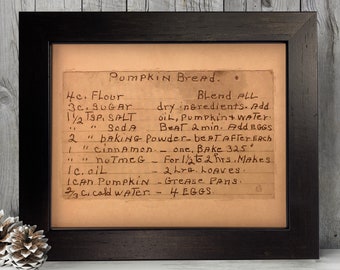 Pumpkin Bread.
4 c. Flour Blend All
3 c. Sugar dry ingredients. Add
1 1/2 Tsp. Salt oil, Pumpkin & water.
" " Soda Beat 2 min. Add Eggs
2 " baking Powder - beat after each
1 " cinnamon - one. Bake 325°
" " nutmeg - For 1 1/2 to 2 hrs. Makes
1 c. oil - 2 Lrg. Loaves.
1 can Pumpkin - Grease Pans.
2/3 c. cold water - 4 Eggs.